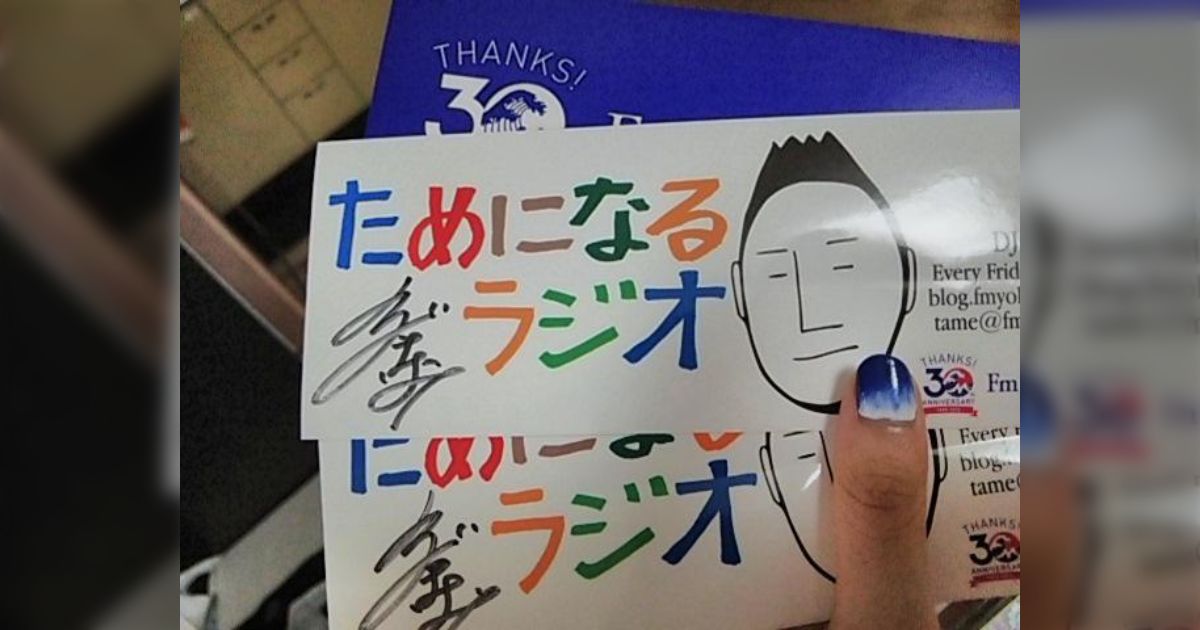 THANKS!
30
ためになる
ラジオ
DJ
Every Frid
blog.fmyo
tame@fm
THANKS!
30
ANNIVERSARY
Fm
ためにな
ラジオ
Every
blog.
tame@
THANKS
30
ANNIVERSARY